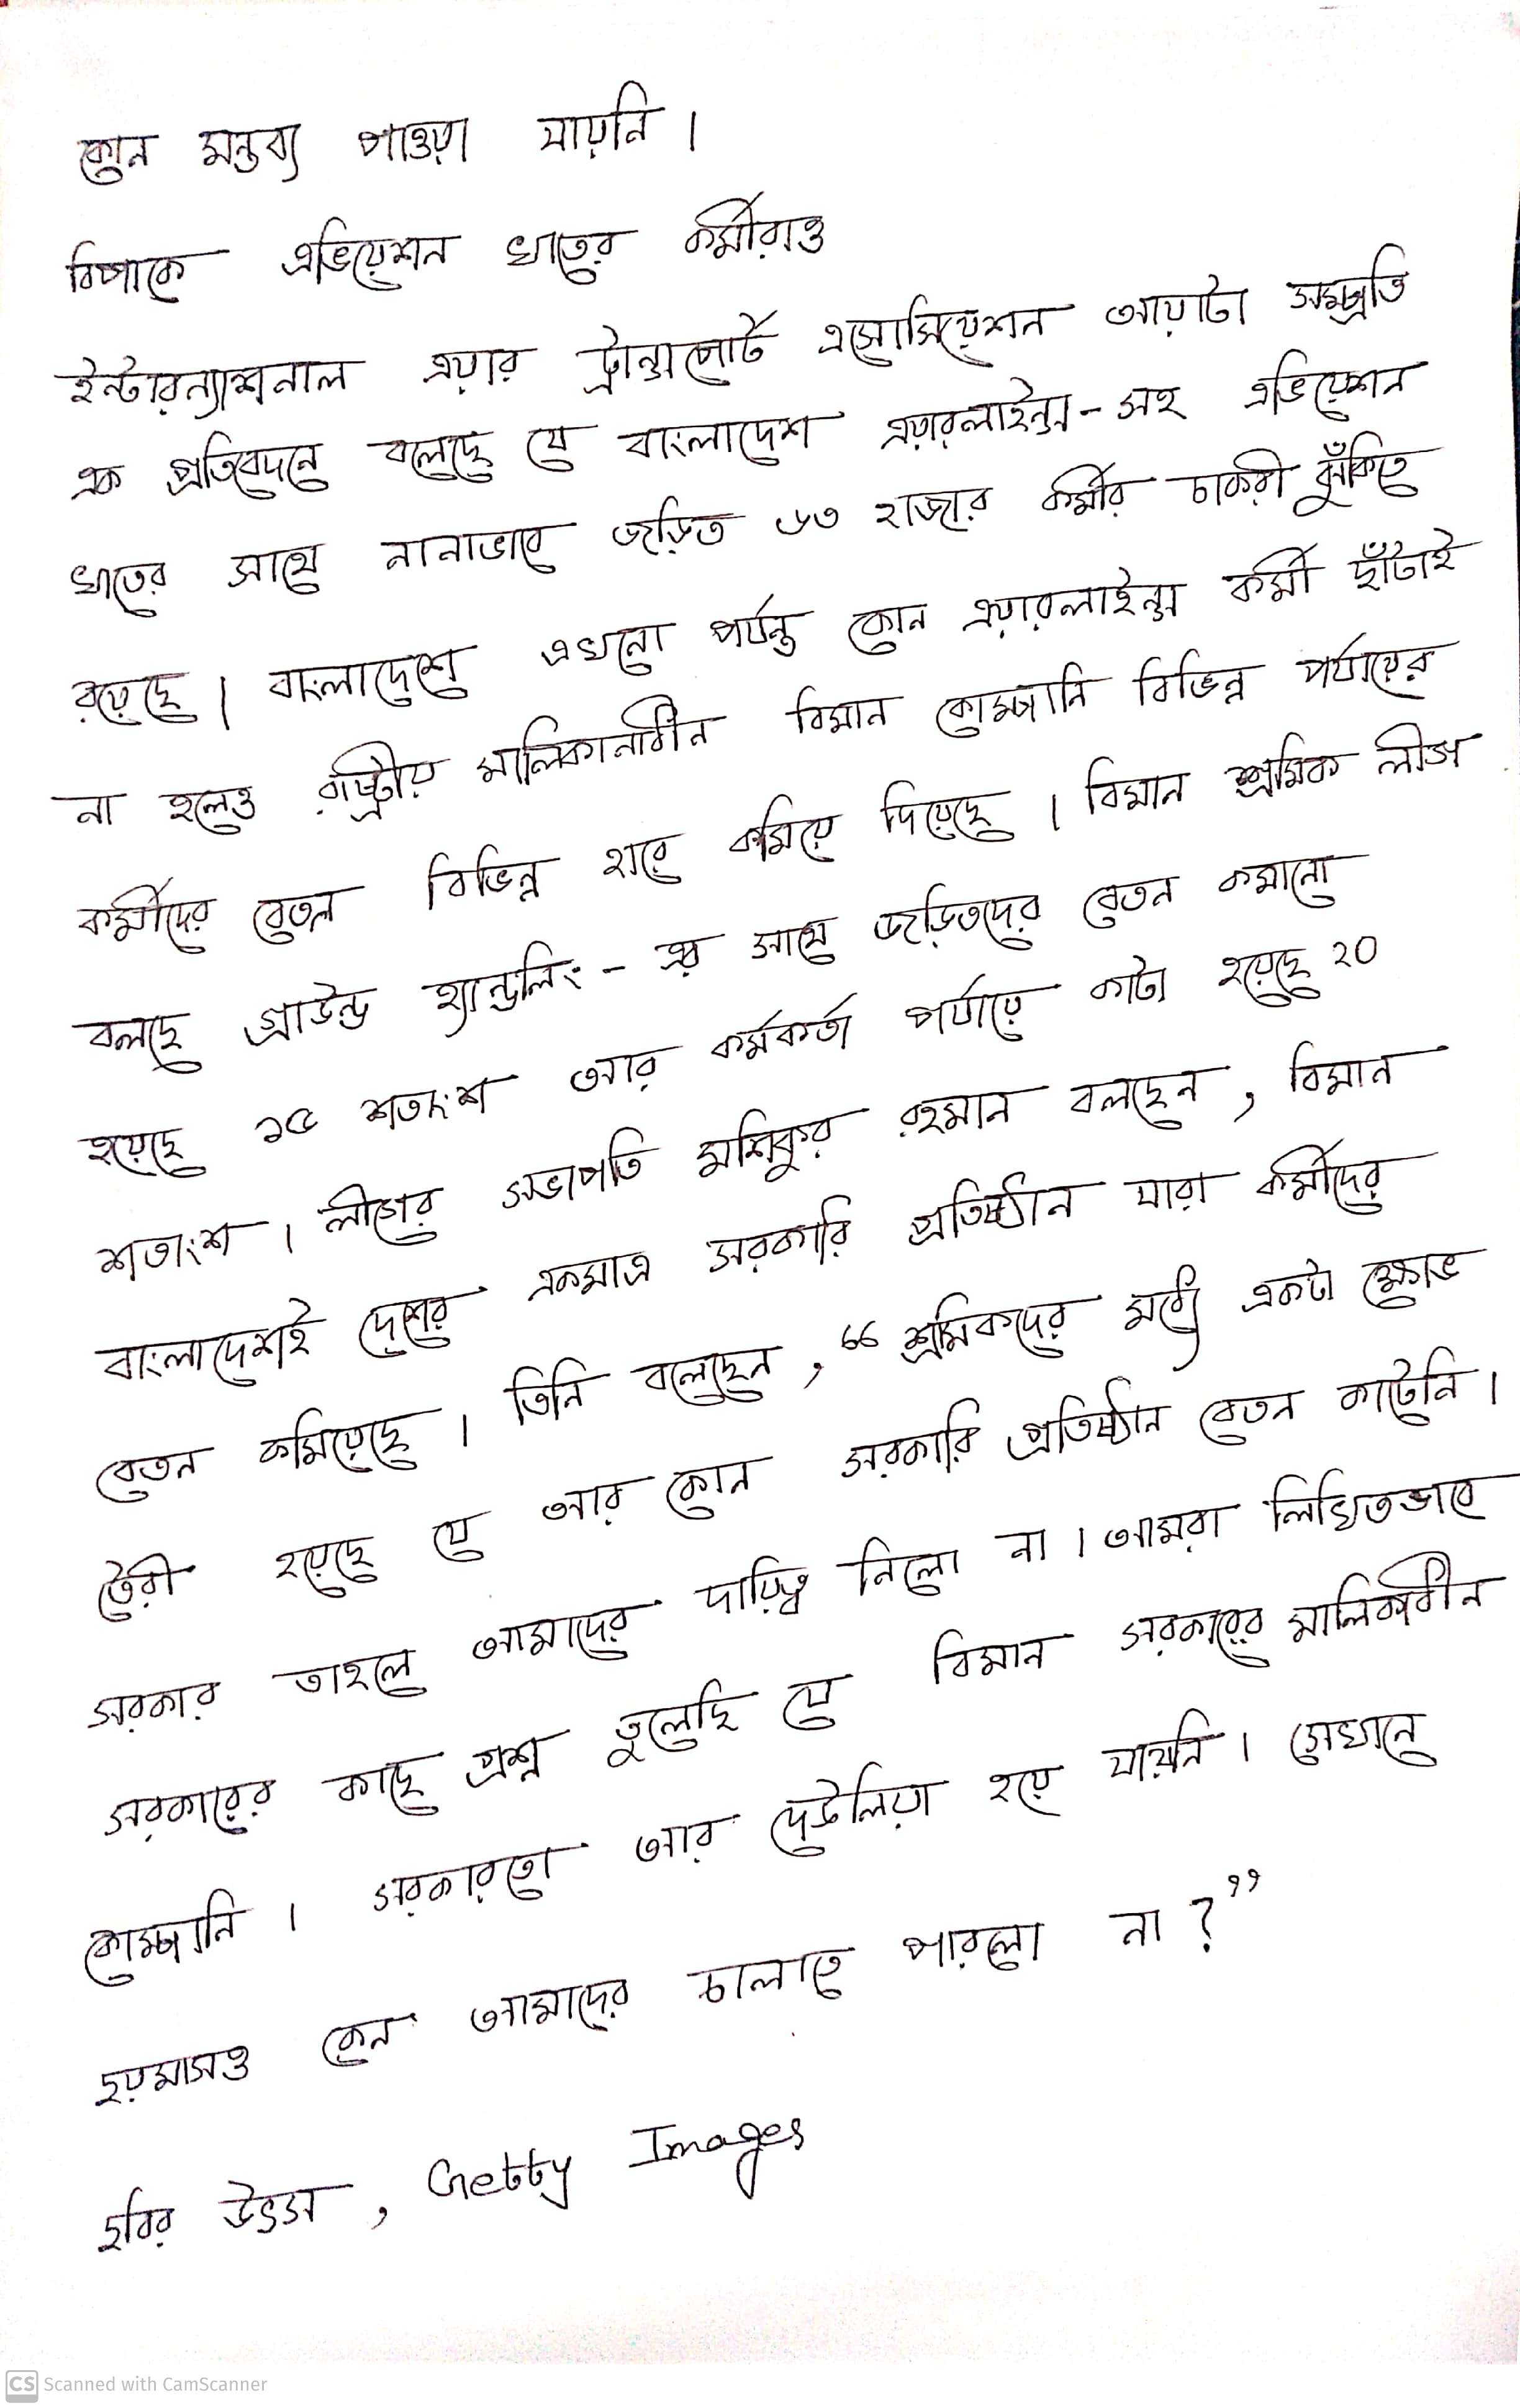 কোন মন্তব্য পাওয়া যায়নি।
বিপাকে এভিয়েশন খাতের কর্মীরাও
ইন্টারন্যাশনাল এয়ার ট্রান্সপোর্ট এসোসিয়েশন আয়াটা সম্প্রতি
এক প্রতিবেদনে বলেছে যে বাংলাদেশ এয়ারলাইন্স-সহ এভিয়েশন
খাতের সাথে নানাভাবে জড়িত ৬৩ হাজার কর্মীর চাকরী ঝুঁকিতে
রয়েছে। বাংলাদেশে এখনো পর্যন্ত কোন এয়ারলাইন্স কর্মী ছাঁটাই
না হলেও রাষ্ট্রীয় মালিকানাধীন বিমান কোম্পানি বিভিন্ন পর্যায়ের
কর্মীদের বেতন বিভিন্ন হারে কমিয়ে দিয়েছে। বিমান শ্রমিক লীগ
বলছে গ্রাউন্ড হ্যান্ডলিং-এর সাথে জড়িতদের বেতন কমানো
হয়েছে ১৫ শতাংশ আর কর্মকর্তা পর্যায়ে কাটা হয়েছে ২০
শতাংশ। লীগের সভাপতি মশিকুর রহমান বলছেন, বিমান
বাংলাদেশই দেশের একমাত্র সরকারি প্রতিষ্ঠান যারা কর্মীদের
বেতন কমিয়েছে। তিনি বলেছেন, “শ্রমিকদের মধ্যে একটা ক্ষোভ
তৈরী হয়েছে যে আর কোন সরকারি প্রতিষ্ঠান বেতন কাটেনি।
সরকার তাহলে আমাদের দায়িত্ব নিলো না। আমরা লিখিতভাবে
সরকারের কাছে প্রশ্ন তুলেছি যে বিমান সরকারের মালিকাধীন
কোম্পানি। সরকারতো আর দেউলিয়া হয়ে যায়নি। সেখানে
ছয়মাসও কেন আমাদের চালাতে পারলো না?”
ছবির উৎস, Getty Images
CS Scanned with CamScanner